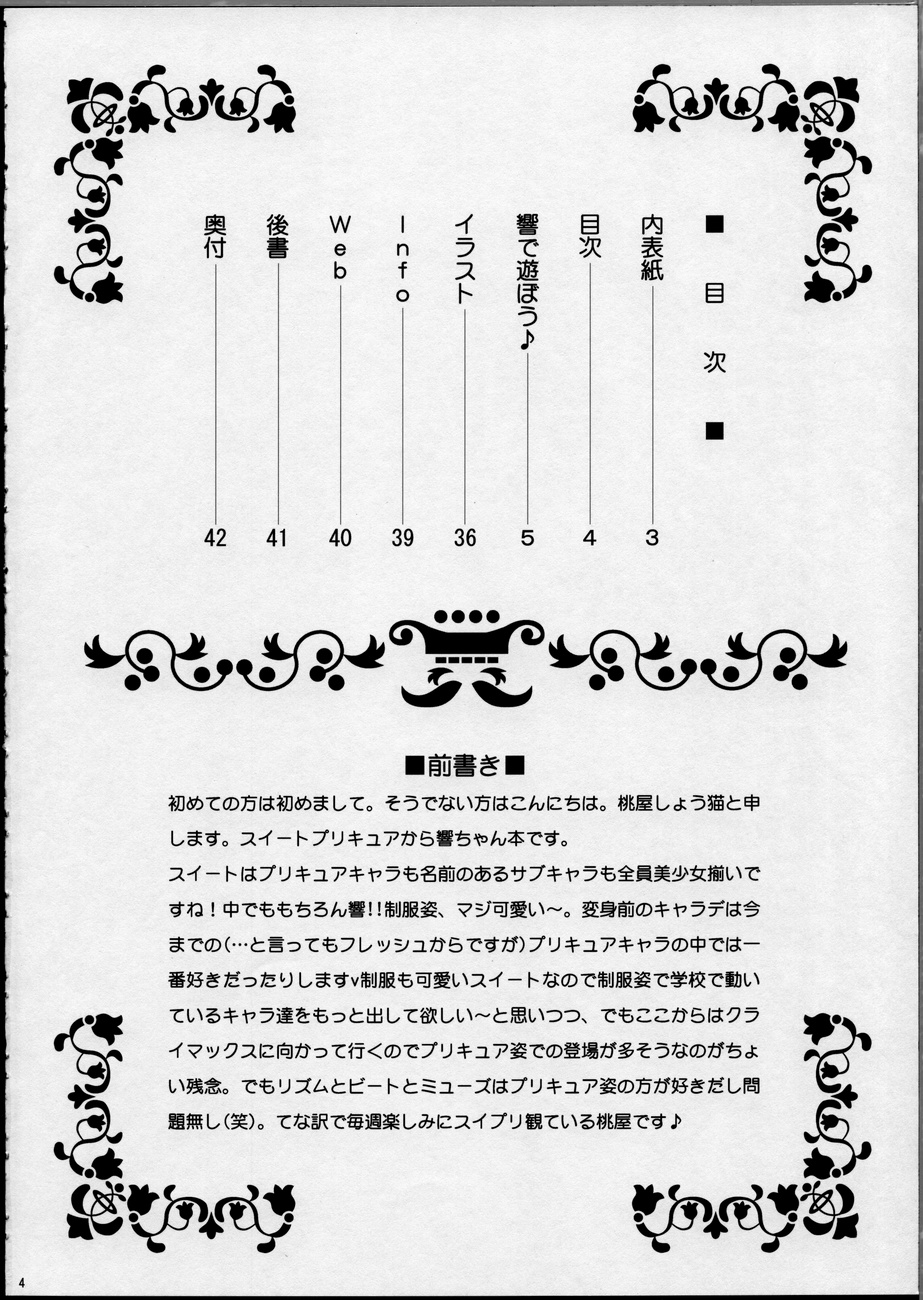 ■目次■
内表紙 3
目次 4
響で遊ぼう♪ 5
イラスト 36
Info 39
Web 40
後書 41
奥付 42
■前書き■
初めての方は初めまして。そうでない方はこんにちは。桃屋しょう猫と申
します。スイートプリキュアから響ちゃん本です。
スイートはプリキュアキャラも名前のあるサブキャラも全員美少女揃いで
すね！中でももちろん響!!制服姿、マジ可愛い～。変身前のキャラデは今
までの(…と言ってもフレッシュからですが)プリキュアキャラの中では一
番好きだったりしますv制服も可愛いスイートなので制服姿で学校で動い
ているキャラ達をもっと出して欲しい～と思いつつ、でもここからはクラ
イマックスに向かって行くのでプリキュア姿での登場が多そうなのがちょ
い残念。でもリズムとビートとミューズはプリキュア姿の方が好きだし問
題無し(笑)。てな訳で毎週楽しみにスイプリ観ている桃屋です♪
4